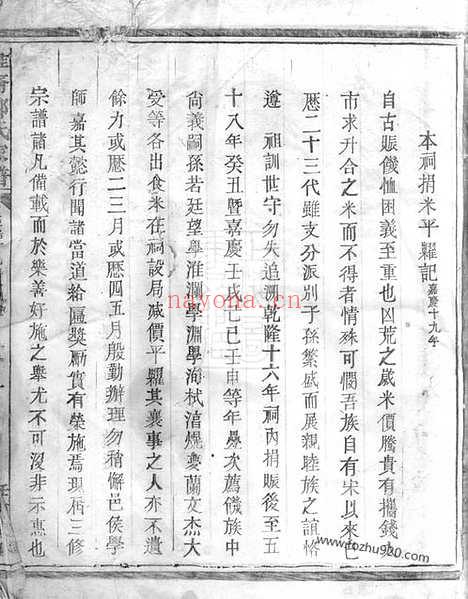 本祠捐米平糶記嘉慶十九年
自古賑饑恤困義至重也凶荒之歲米價騰貴有攜錢
市求升合之米而不得者情殊可憫吾族自有宋以來已
歷二十三代雖支分派別子孫繁盛而展親睦族之誼恪
遵 祖訓世守勿失追溯乾隆十六年祠內捐賑後至五
十八年癸丑暨嘉慶壬戌己巳壬申等年疊次薦饑族中
尙義嗣孫若廷望學淮瀾學淵學洵栻 夔蘭文杰大
受等各出食米在祠設局減價平糶其襄事之人亦不遺
餘力或歷二三月或歷四五月殷勤辦理勿稍懈邑侯學
師嘉其懿行聞諸當道給匾獎勵實有榮施焉現届三修
宗譜諸凡備載而於樂善好施之舉尤不可沒非示惠也
nayona.cn
www.tozhu920.com